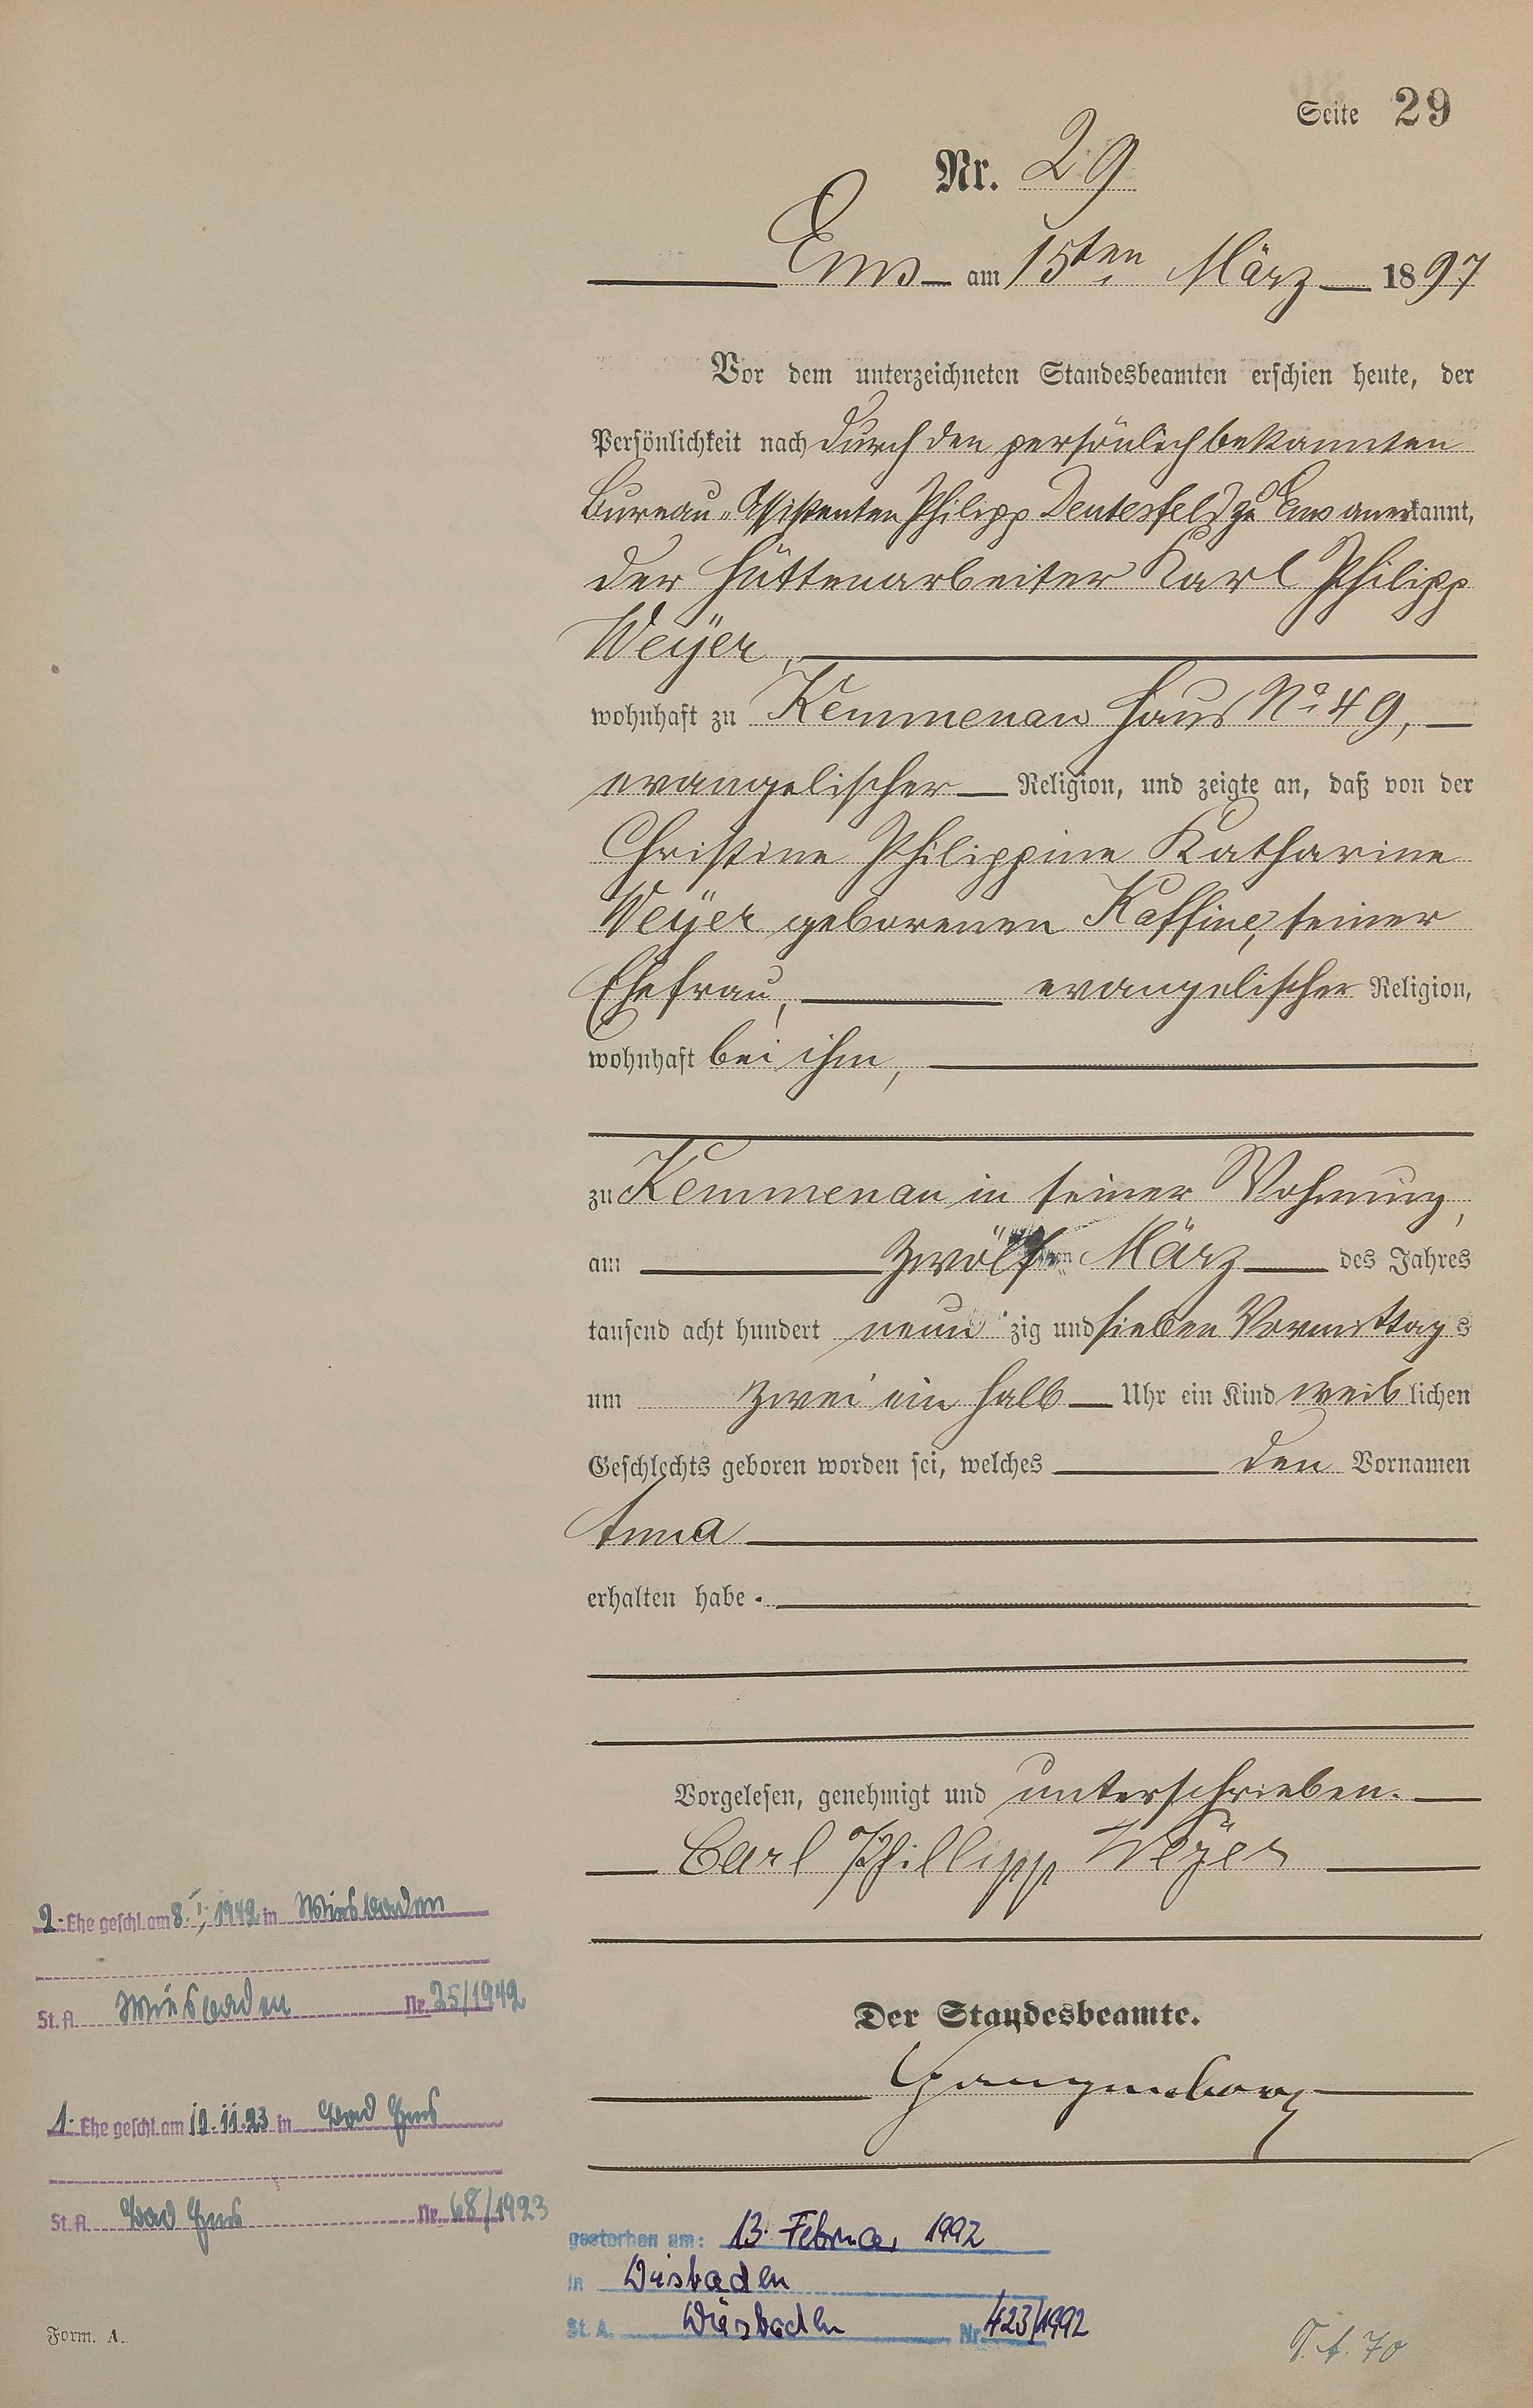 Seite 29
Nr. 29
Ems am 15ten März 1897
Vor dem unterzeichneten Standesbeamten erschien heute, der
Persönlichkeit nach durch den persönlich bekannten
Bureau-Assistenten Philipp Deutesfeld zu Ems anerkannt,
der Hüttenarbeiter Karl Philipp
Weyer,
wohnhaft zu Kemmenau Haus No 49,
evangelischer Religion, und zeigte an, daß von der
Christine Philippine Katharine
Weyer geborenen Kaffine, seiner
Ehefrau, evangelischer Religion,
wohnhaft bei ihm,
zu Kemmenau in seiner Wohnung,
am zwölften März des Jahres
tausend acht hundert neunzig und sieben Vormittags
um zwei ein halb Uhr ein Kind weiblichen
Geschlechts geboren worden sei, welches den Vornamen
Anna
erhalten habe.
Vorgelesen, genehmigt und unterschrieben.
Carl Phillipp Weyer
Der Standesbeamte.
2. Ehe geschl. am 8. I. 1942 in Wiesbaden
St. A. Wiesbaden Nr. 25/1942
1. Ehe geschl. am 10.11.23 in Bad Ems
St. A. Bad Ems Nr. 68/1923
gestorben am: 13. Februar 1992
in Wiesbaden
St. A. Wiesbaden Nr. 423/1992
Form. A.